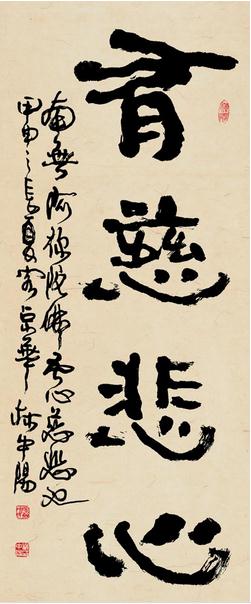 有慈悲心
南無阿弥陀佛心慈悲也
甲申之长夏客京華林中陽